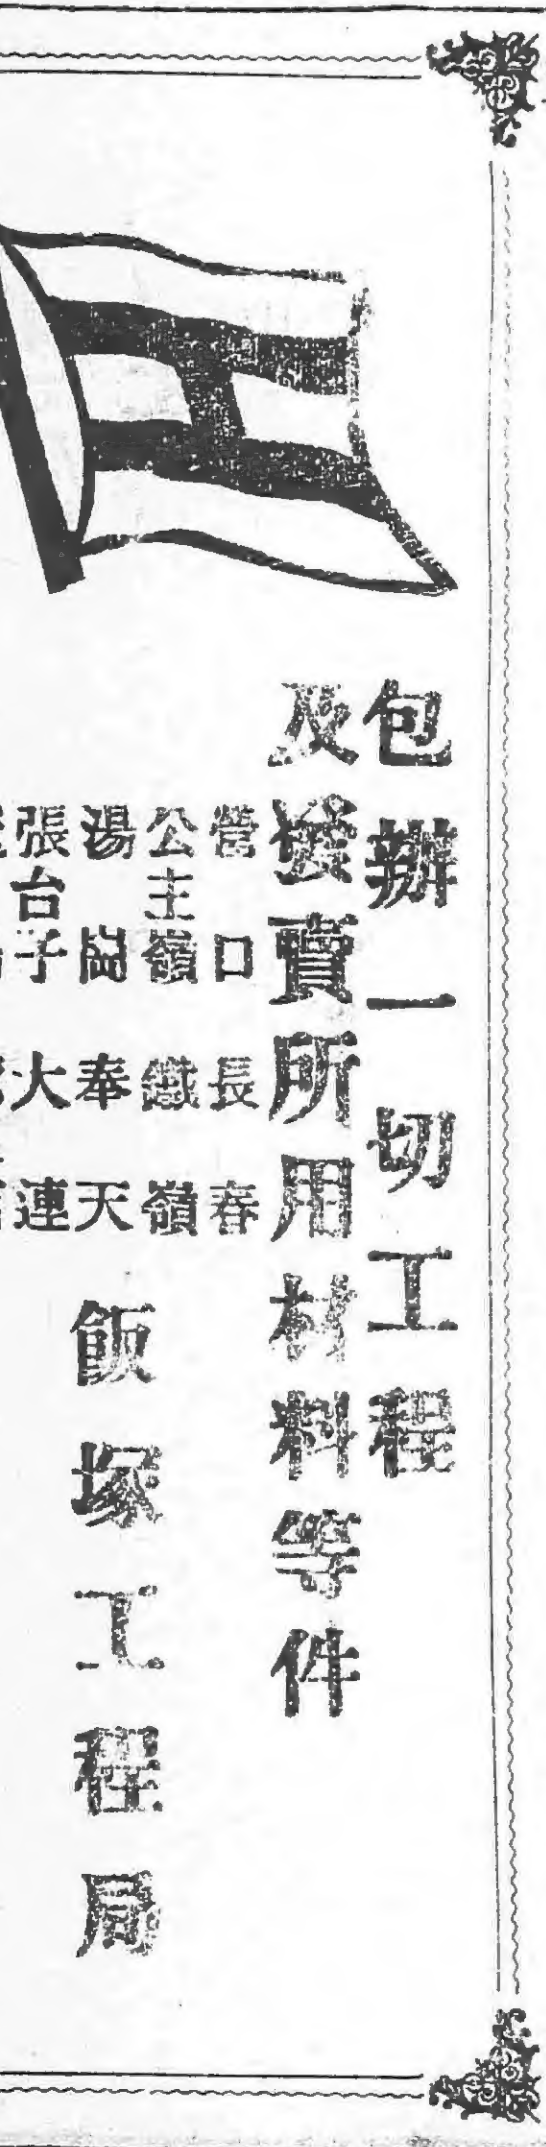 包辦一切工程
及發賣所用材料等件
營口 長春
公主嶺 鐵嶺
湯崗 奉天
張台子 大連
飯塚工程局